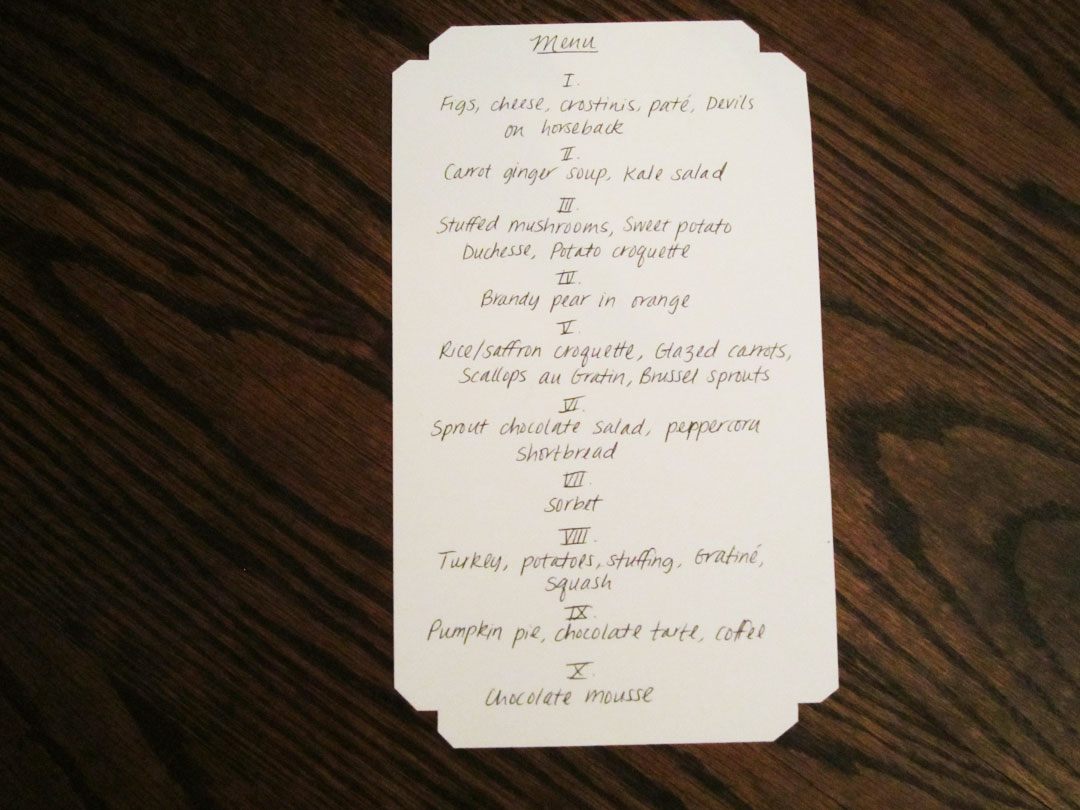 Menu
I.
Figs, cheese, crostinis, paté, Devils
on horseback
II.
Carrot ginger soup, Kale salad
III.
Stuffed mushrooms, Sweet potato
Duchesse, Potato croquette
IV.
Brandy pear in orange
V.
Rice/saffron croquette, Glazed carrots,
Scallops au Gratin, Brussel sprouts
VI.
Sprout chocolate salad, peppercorn
Shortbread
VII.
Sorbet
VIII.
Turkey, potatoes, stuffing, Gratiné,
Squash
IX.
Pumpkin pie, chocolate tarte, coffee
X.
Chocolate mousse